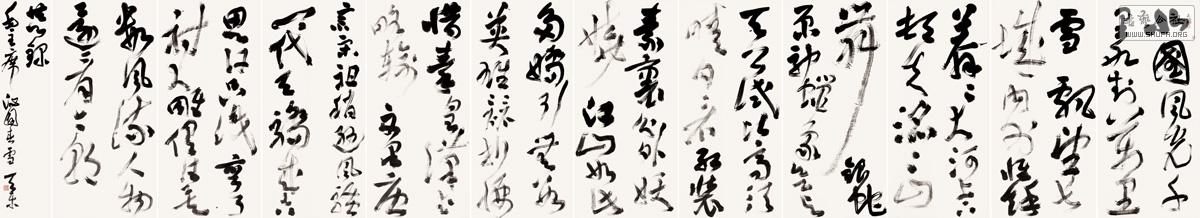 北國風光千
里冰封萬里
雪飄望長
城內外惟餘
莽莽大河上下
頓失滔滔山
舞銀蛇
原馳蠟象欲与
天公試比高須
晴日看紅裝
素裹分外妖
嬈江山如此
多嬌引無數
英雄競折腰
惜秦皇漢武
略輸文采唐
宗宋祖稍遜風騷
一代天驕成吉
思汗只識彎弓
射大雕俱往矣
數風流人物
還看今朝
恭錄
毛主席沁園春雪
WWW.SHUFA.ORG